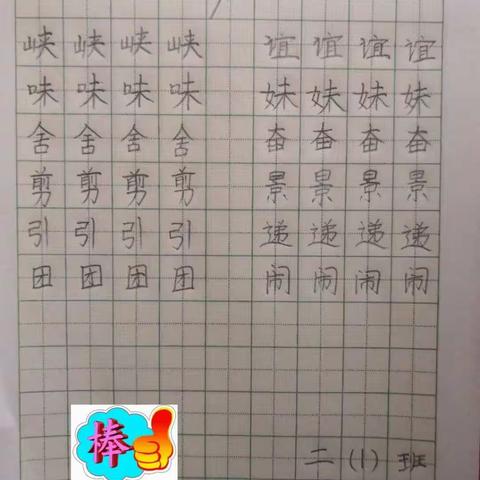 峡 峡 峡 峡 谊 谊 谊 谊
味 味 味 味 妹 妹 妹 妹
舍 舍 舍 舍 奋 奋 奋 奋
剪 剪 剪 剪 景 景 景 景
引 引 引 引 递 递 递 递
团 团 团 团 闹 闹 闹 闹
棒
二(1)班